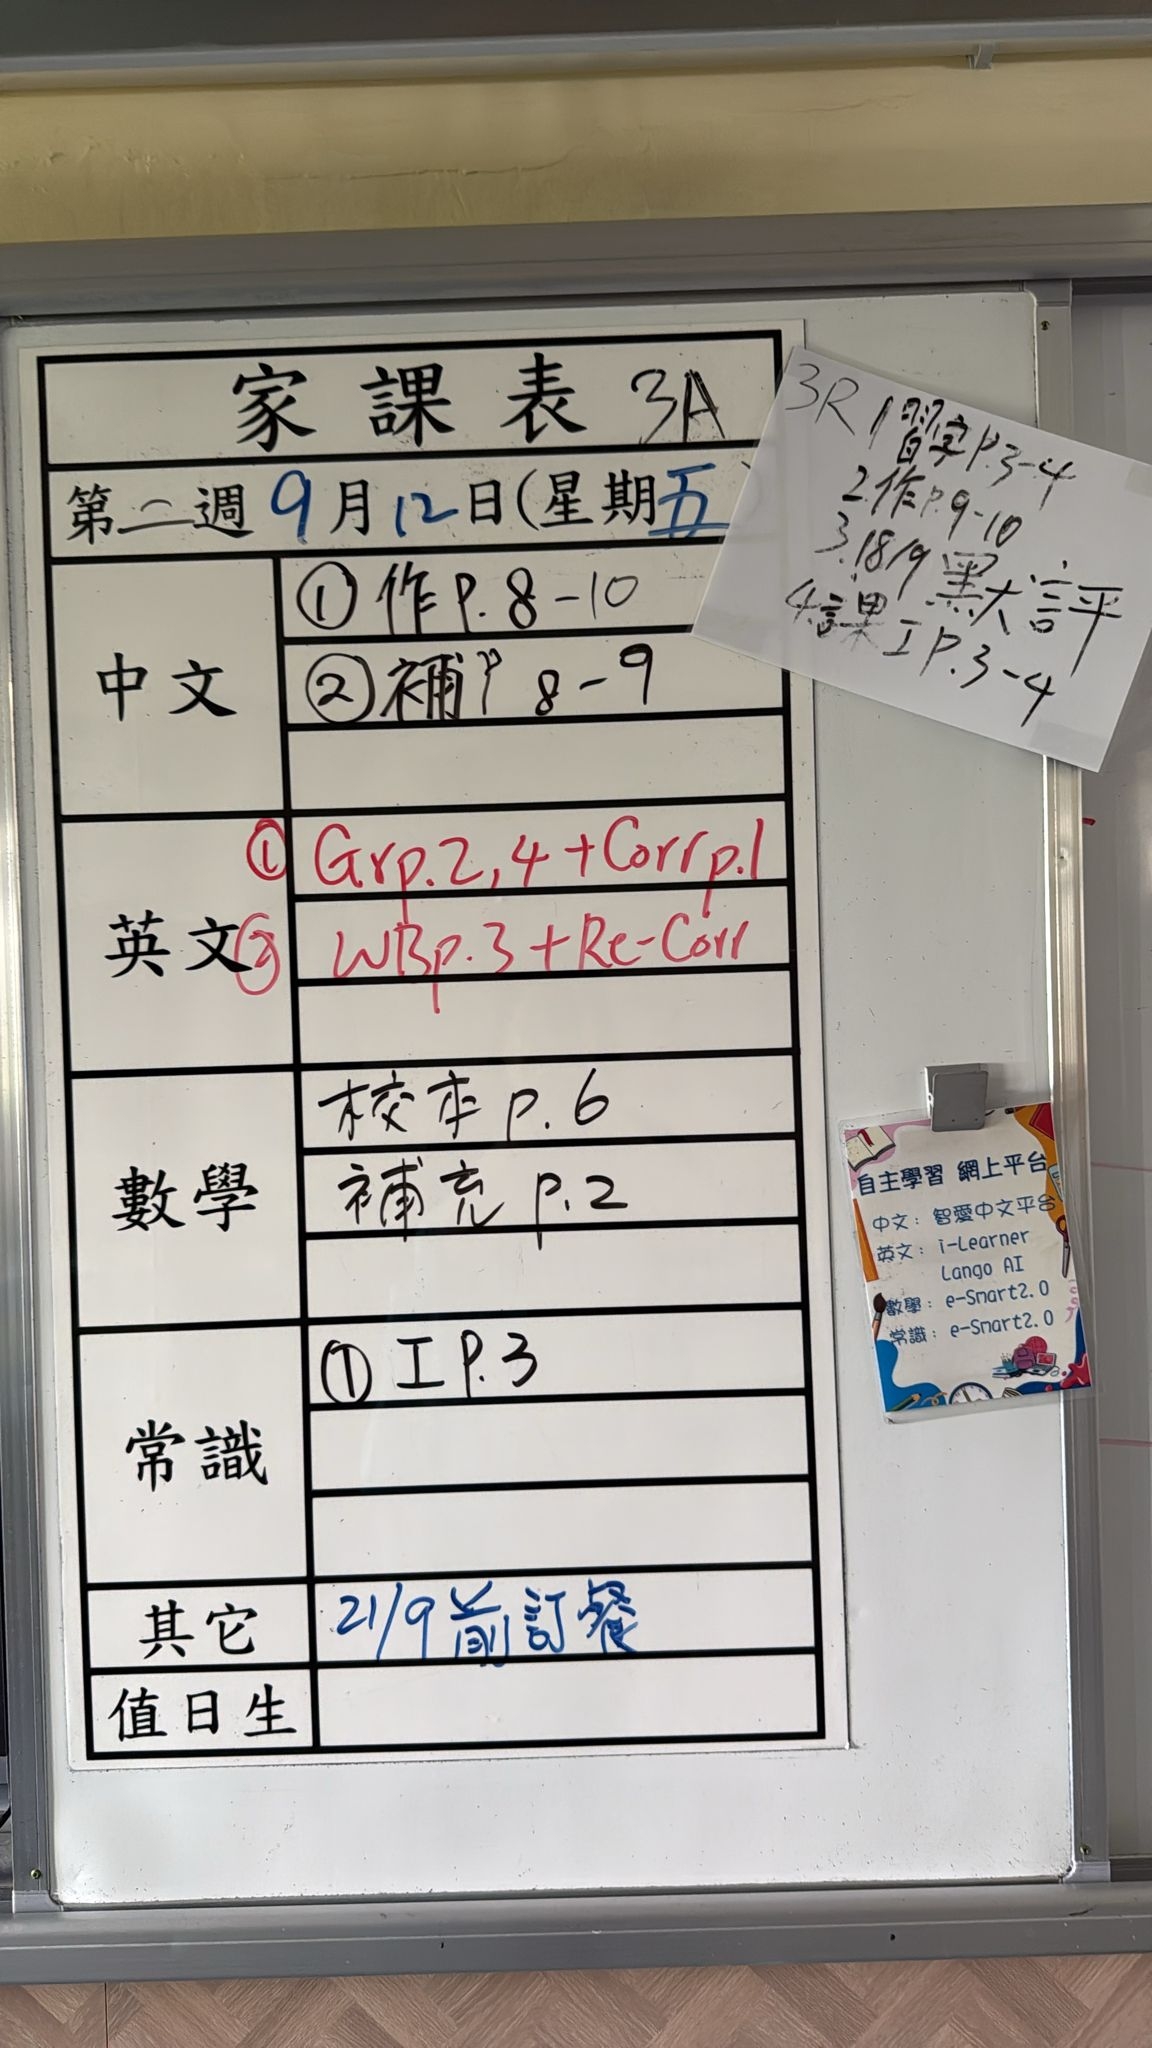 家課表 3A
第二週 9月12日(星期五
中文
① 作 P. 8-10
② 補 P 8-9
英文
① Gr p.2, 4 + Corr p.1
② WB p.3 + Re-Corr
數學
校本 p.6
補充 p.2
常識
① I P.3
其它
21/9 前訂餐
值日生
3R 1 習字 P.3-4
2 作 P.9-10
3. 18/9 黑大評
4. 課 I P.3-4
自主學習 網上平台
中文: 智愛中文平台
英文: i-Learner
Lango AI
數學: e-Smart2.0
常識: e-Smart2.0